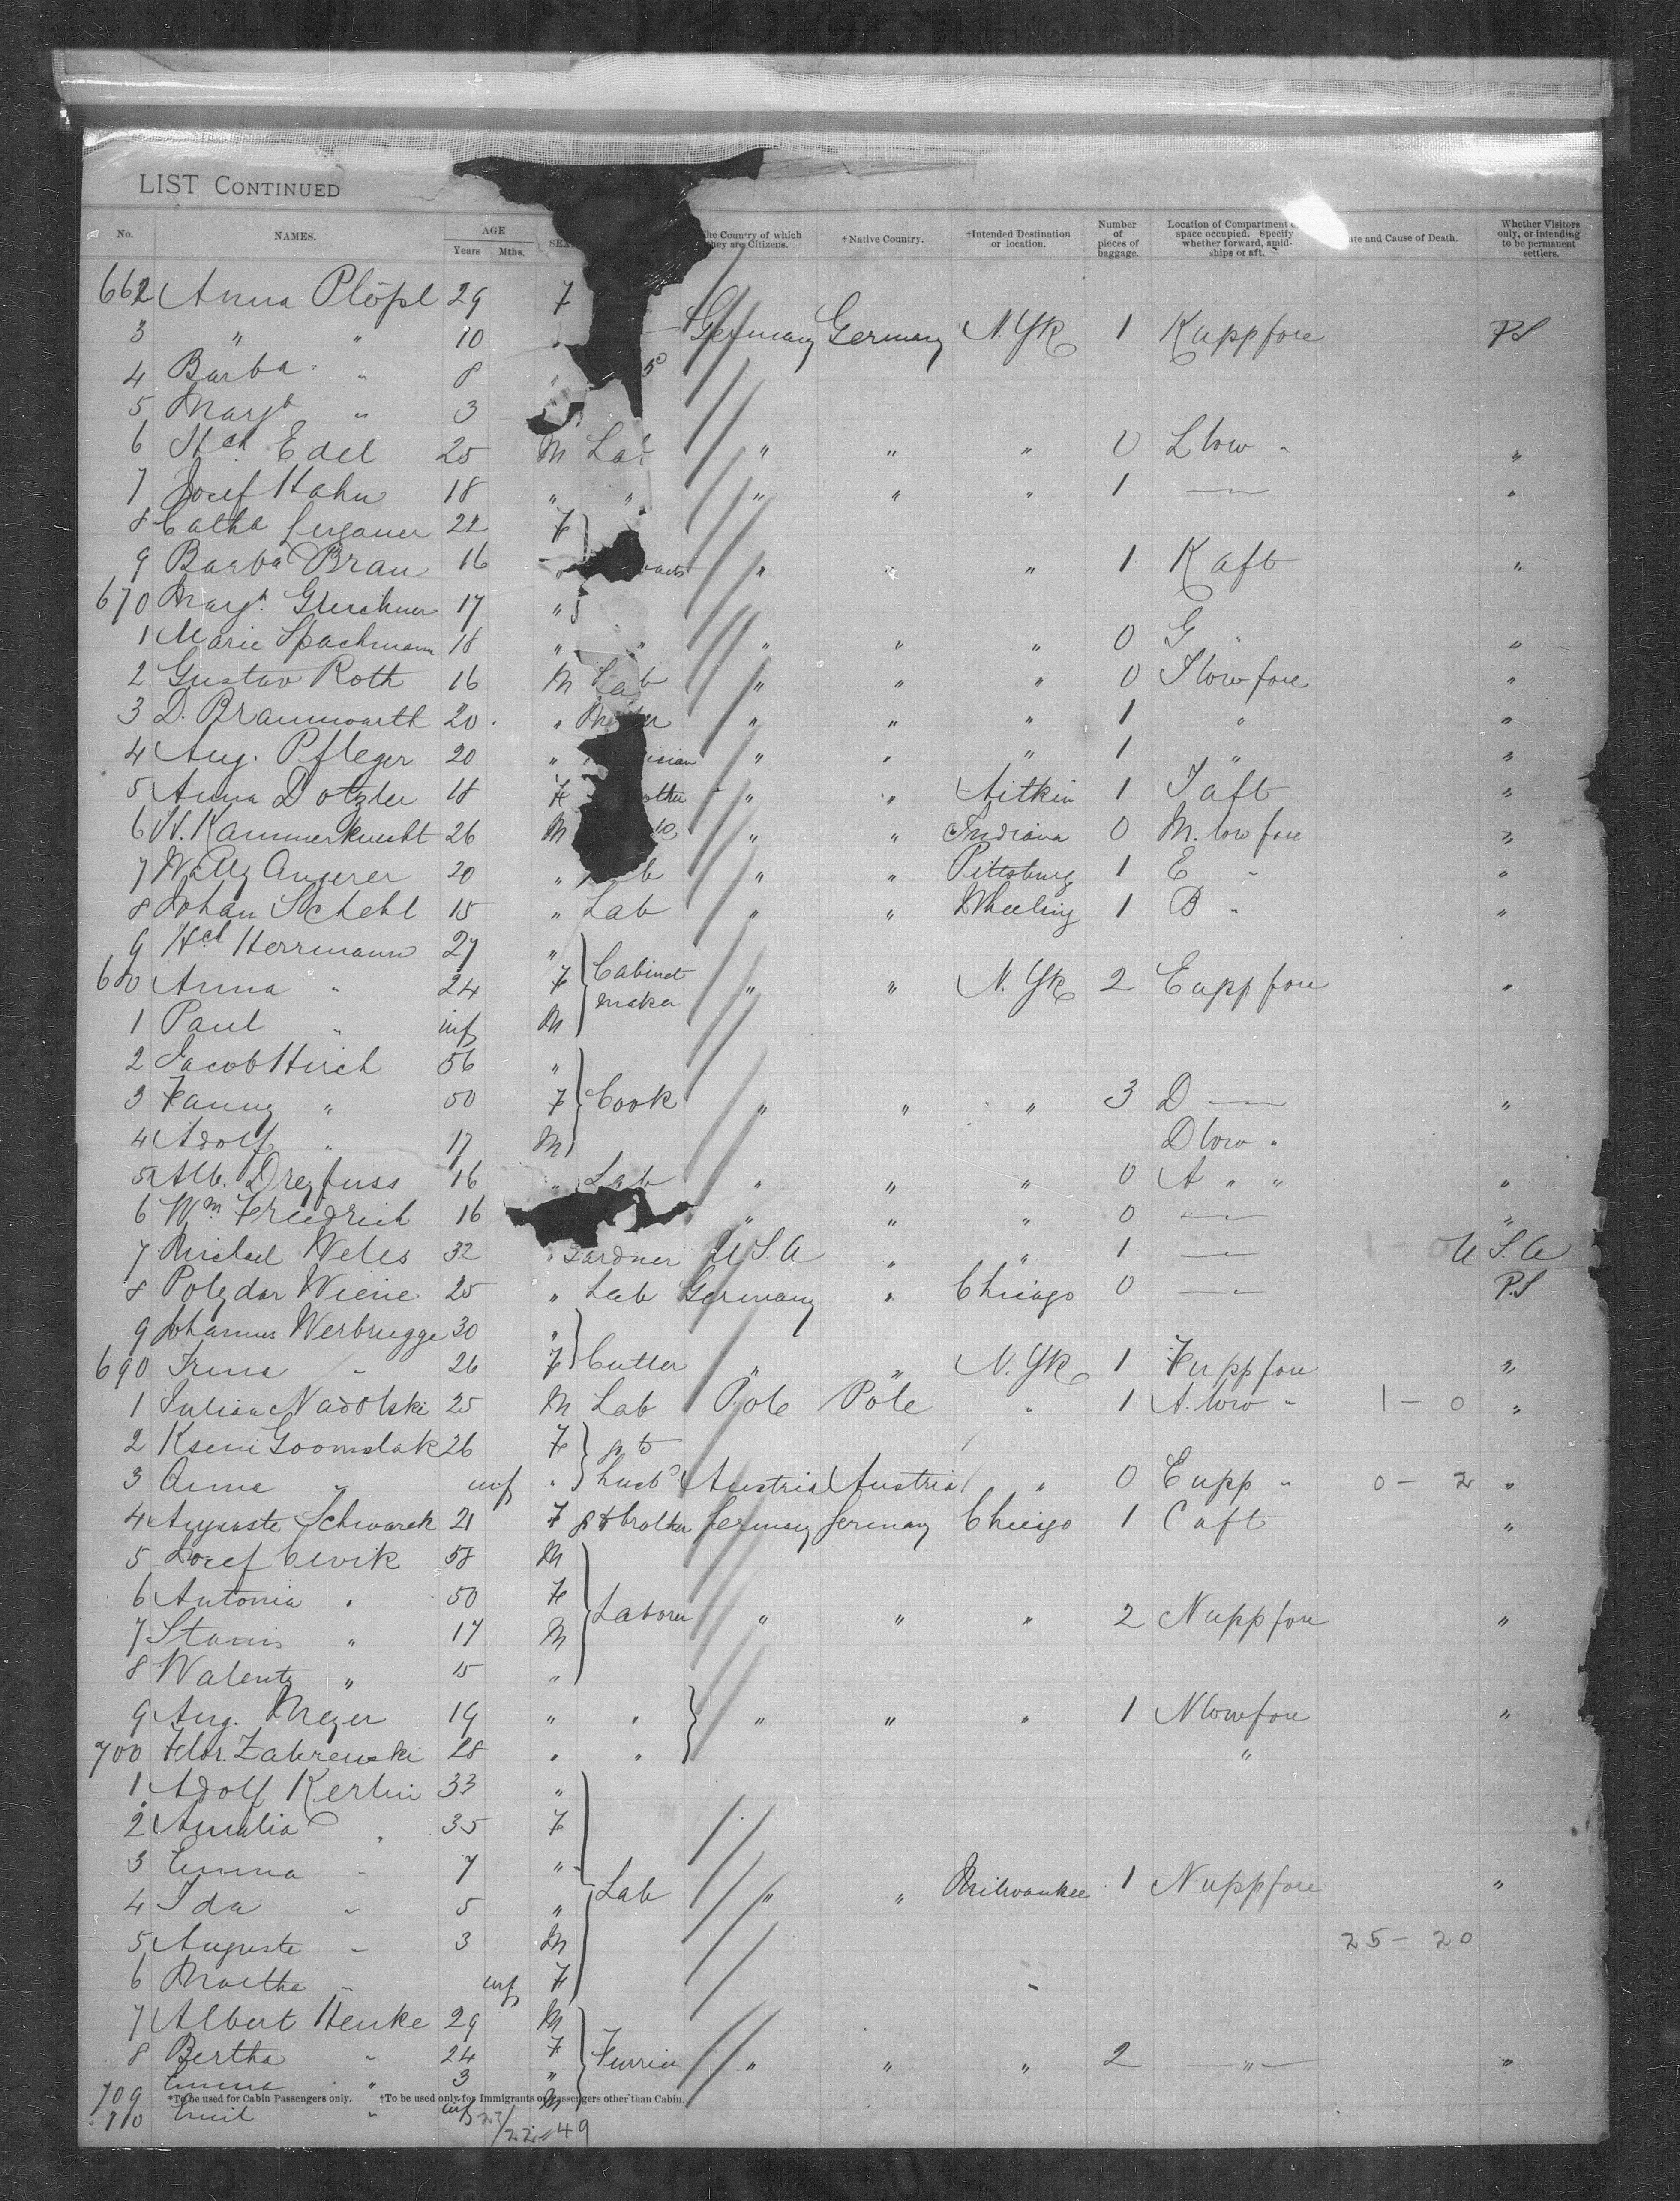 LIST CONTINUED
No. NAMES. AGE Years Mths. SEX he Country of which they are Citizens. †Native Country. †Intended Destination or location. Number of pieces of baggage. Location of Compartment space occupied. Specify whether forward, amidships or aft. ate and Cause of Death. Whether Visitors only, or intending to be permanent settlers.
662 Anna Plöpl 29 F
3 " " 10 Germany Germany N.Yk 1 K upp fore P.S
4 Barba " 8 "
5 Margt " 3
6 Hch Edel 25 M Lab " " " 0 L low " "
7 Josef Hahn 18 " " " " " 1 — "
8 Catha 22 F
9 Barba Brau 16 " " " " 1 K aft "
670 Margt 17 "
1 Marie Spachmann 18 " " " " " 0 G " "
2 Gustav Roth 16 M Lab " " " 0 I low fore "
3 D. Braunwarth 20 " " " " 1 " "
4 Aug. Pfleger 20 " " " " 1 " "
5 Anna Dotzler 18 F " " Aitkin 1 I aft "
6 W. Kammerknecht 26 M " " Indiana 0 M. low fore "
7 Angerer 20 " " " Pittsburg 1 E " "
8 Johan Schehl 15 " Lab " " Wheeling 1 B " "
9 Hch Herrmann 27 " Cabinet
680 Anna " 24 F maker " " N.Yk 2 E upp fore "
1 Paul " inf M
2 Jacob Hirch 56 "
3 Fanny " 50 F Cook " " " 3 D — "
4 Adolf " 17 M D low "
5 Alb. Dreyfuss 16 " Lab " " " 0 A " " "
6 Wm Friedrich 16 " " " 0 — "
7 Michael Weles 32 " Gardner U.S.A " " 1 — U.S.A
8 Polydor Wiene 25 " Lab Germany " Chicago 0 — P.S
9 Johannes Werbrugge 30 "
690 Irma " 26 F Cutter " " N.Yk 1 F upp fore "
1 Julian Nadolski 25 M Lab Pole Pole " 1 A. low " 1 - 0 "
2 Kseni 26 F g to
3 Anna " inf " husb Austria Austria " 0 E upp " 0 - 2 "
4 Auguste Schwarck 21 F g t brother Germany Germany Chicago 1 C aft "
5 Josef Cwik 58 M
6 Antonia " 50 F Laborer " " " 2 N upp fore "
7 Stanis " 17 M
8 Walenty " 15 "
9 Aug. Meyer 19 " " " " " 1 N low fore "
700 Zabrewski 28 " " "
1 Adolf Kerlin 33 "
2 Amalia " 35 F
3 Emma " 7 "
4 Ida " 5 " Lab " " Milwaukee 1 N upp fore "
5 Auguste " 3 M 25 - 20
6 Martha " inf F
7 Albert Henke 29 M
8 Bertha " 24 F Furrier " " " 2 — " — "
709 Emma " 3 "
*To be used for Cabin Passengers only. †To be used only for Immigrants or Passengers other than Cabin.
710 Emil " inf M
27/22 - 49